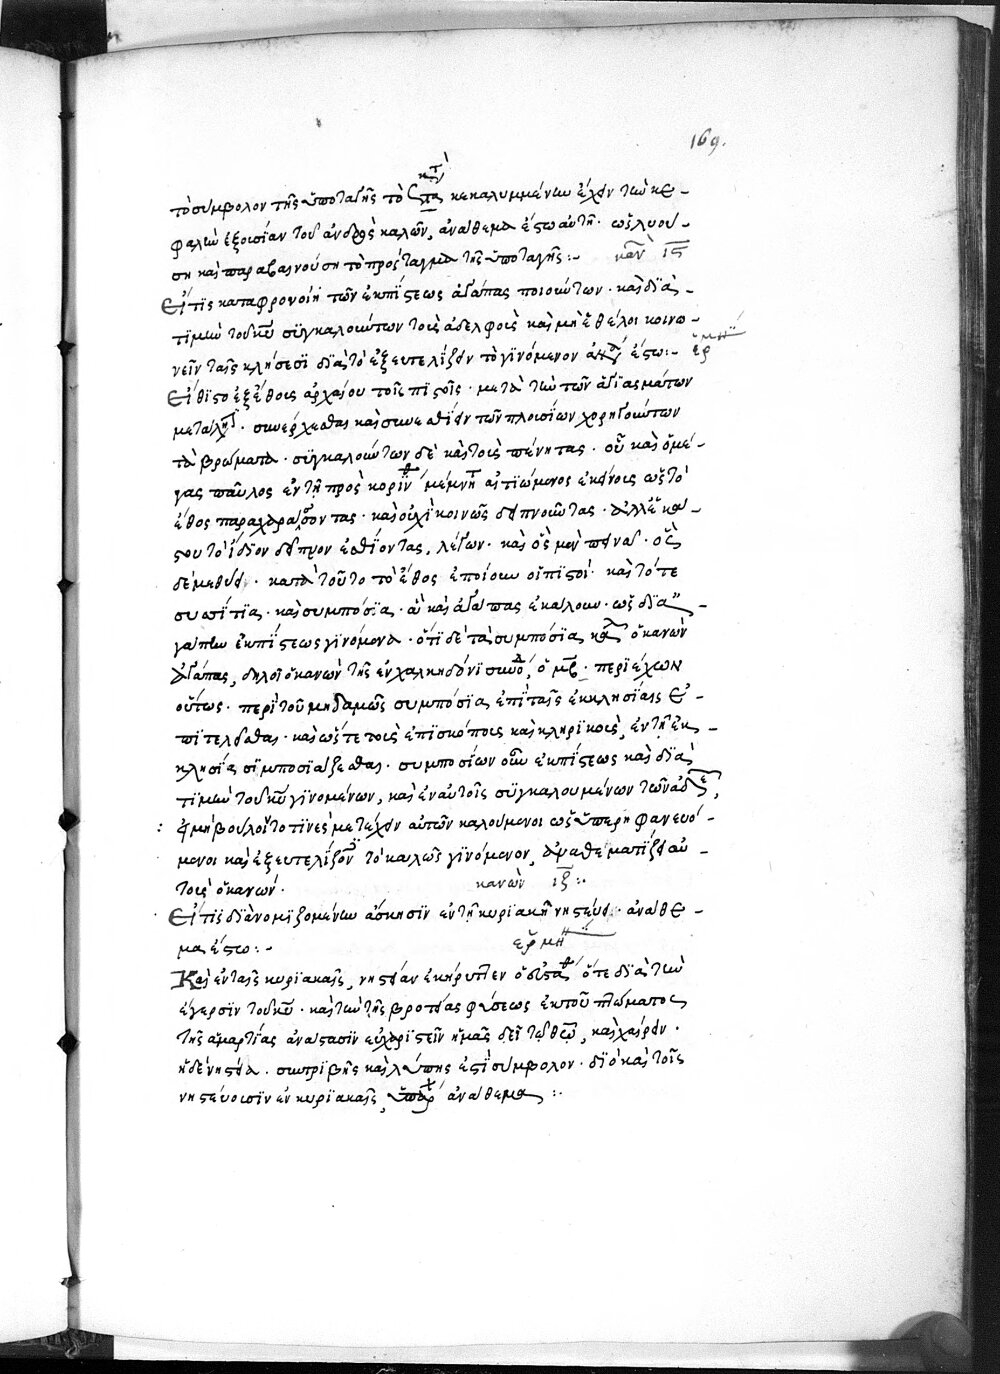 169.
τὸ σύμβολον τῆς ὑποταγῆς τὸ κεκαλυμμένην ἔχειν τὴν κε-
φαλὴν ἐξουσίαν τοῦ ἀνδρὸς καλῶν, ἀνάθεμα ἔστω αὐτῆ· ὡς λυού-
ση καὶ παραβαινούση τὸ πρόσταγμα τῆς ὑποταγῆς:- κανὼν
Εἴ τις καταφρονοίη τῶν ἐκ πίστεως ἀγάπας ποιούντων· καὶ διὰ
τιμὴν τοῦ κυ συγκαλούντων τοὺς ἀδελφοὺς καὶ μὴ ἐθέλοι κοινω-
νεῖν ταῖς κλήσεσι διὰ τὸ ἐξευτελίζειν τὸ γινόμενον ἔστω:-
Εἴθιστο ἐξ ἔθους ἀρχαίου τοῖς πιστοῖς· μετὰ τὴν τῶν ἁγιασμάτων
μετάληψ· συνέρχεσθαι καὶ συνεσθίειν τῶν πλουσίων χορηγούντων
τὰ βρώματα· συγκαλούντων δὲ καὶ τοὺς πένητας· οὗ καὶ ὁ μέ-
γας παῦλος ἐν τῆ πρὸς κορινθ μέμνητ αἰτιώμενος ἐκείνους ὡς τὸ
ἔθος παραχαράσσοντας· καὶ οὐχὶ κοινῶς δειπνοῦντας· ἀλλ' ἕκα-
στου τὸ ἴδιον δεῖπνον ἐσθίοντας, λέγων· καὶ ὃς μὲν πεινᾶ· ὃς
δὲ μεθύει· κατὰ τοῦτο τὸ ἔθος ἐποίουν οἱ πιστοὶ· καὶ τότε
συσσίτια· καὶ συμπόσια· ἃ καὶ ἀγάπας ἐκάλουν· ὡς δι' ἀ-
γάπην ἐκ πίστεως γινόμενα· ὅτι δὲ τὰ συμπόσια καλ ὁ κανὼν
ἀγάπας, δηλοῖ ὁ κανὼν τῆς ἐν χαλκηδόνι συνόδ, ὁ περιέχων
οὕτως· περὶ τοῦ μηδαμῶς συμπόσια ἐπὶ ταῖς ἐκκλησίαις ἐ-
πιτελεῖσθαι· καὶ ὥστε τοὺς ἐπισκόπους καὶ κληρικοὺς, ἐν τῆ ἐκ-
κλησία συμποσιάζεσθαι· συμποσίων οὖν ἐκ πίστεως καὶ διὰ
τιμὴν τοῦ κυ γινομένων, καὶ ἐν αὐτοῖς συγκαλουμένων τῶν ἀδελ,
εἰ μὴ βούλοιντο τινὲς μετέχειν αὐτῶν καλούμενοι ὡς ὑπερηφανευό-
μενοι καὶ ἐξευτελίζοντ τὸ καλῶς γινόμενον, ἀναθεματίζει αὐ-
τοὺς ὁ κανών· κανὼν ιξ:·
Εἴ τις διὰ νομιζομένην ἄσκησιν ἐν τῆ κυριακῆ νηστεύει· ἀνάθε-
μα ἔστω:- ἑρμη
Καὶ ἐν ταῖς κυριακαῖς, νηστείαν ἐκήρυττεν ὁ ὅτε διὰ τὴν
ἔγερσιν τοῦ κυ· καὶ τὴν τῆς βροτείας φύσεως ἐκ τοῦ πτώματος
τῆς ἁμαρτίας ἀνάστασιν εὐχαριστεῖν ἡμᾶς δεῖ τῶ θω, καὶ χαίρειν·
ἡ δὲ νηστεία· συντριβῆς καὶ λύπης ἐστὶ σύμβολον· διὸ καὶ τοῖς
νηστεύουσιν ἐν κυριακαῖς, ἀνάθεμα:·